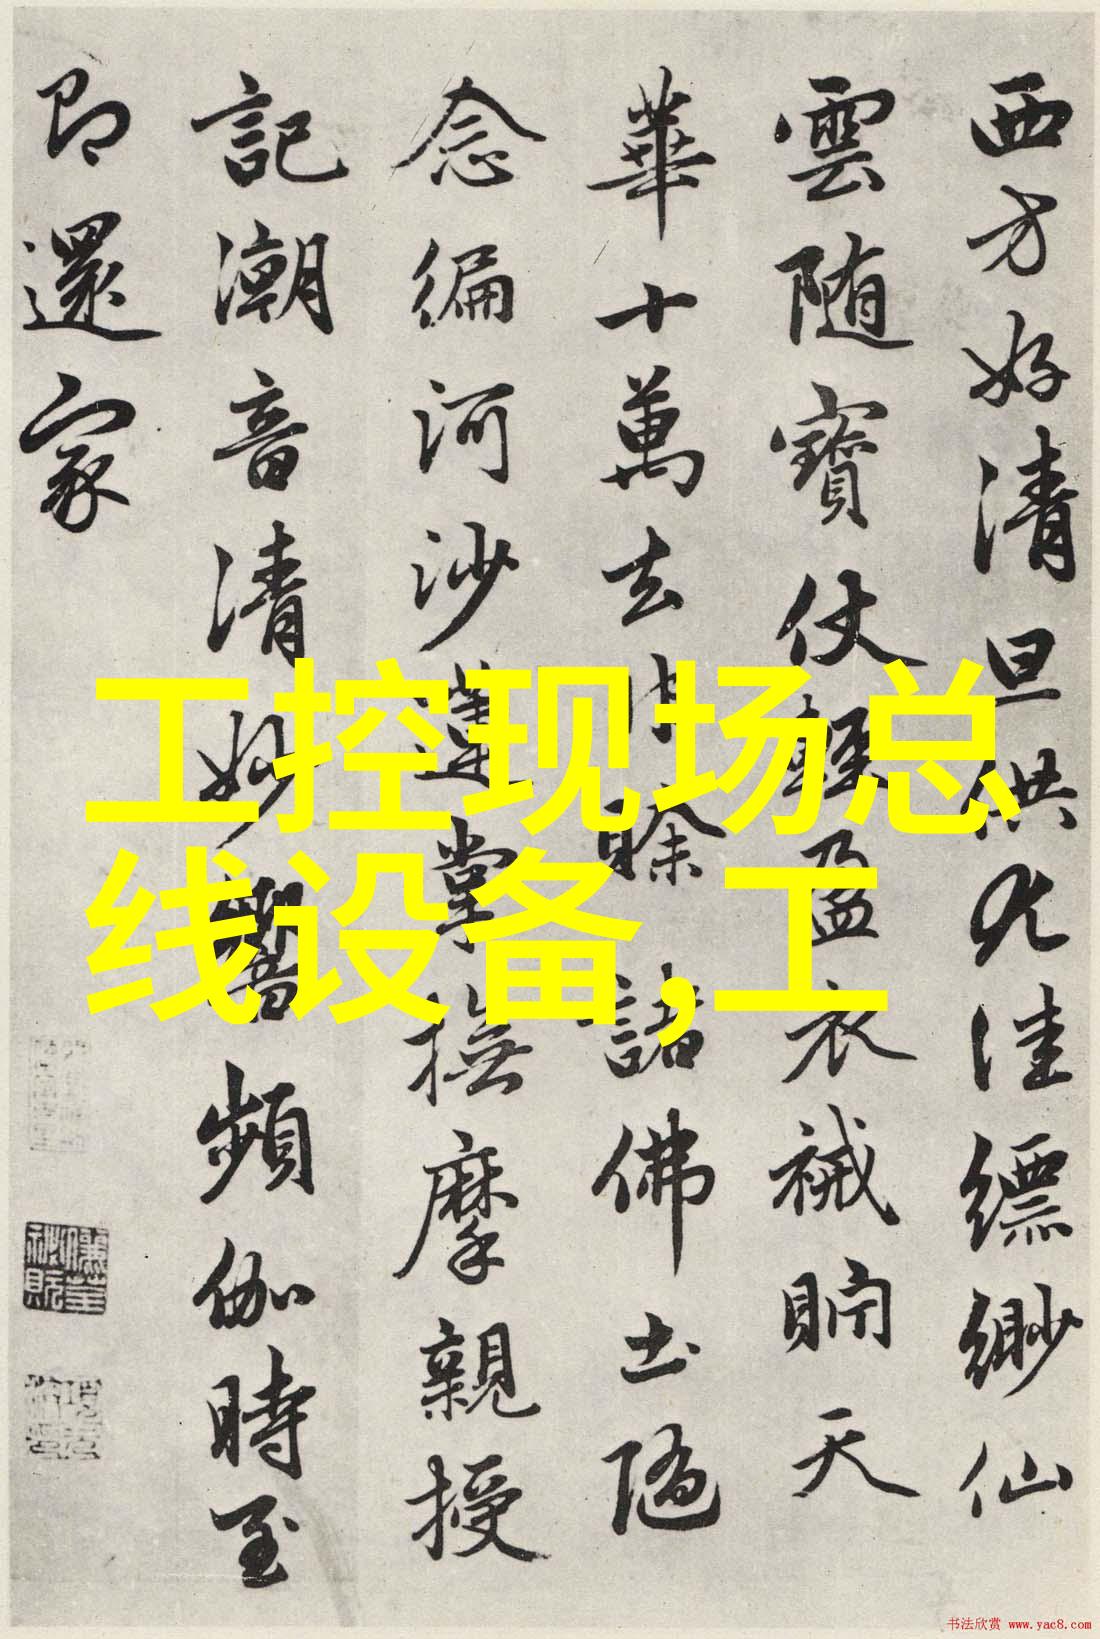 西方好清旦供尤佳縹緲仙
雲随寶仗輕盈衣祴貯天
華十萬去賒諸佛土隨
念編河沙蓮掌撫摩親授
記潮音清妙響頻伽時至
即還家
工控现场总
线设备,工
书法欣赏 www.yac8.com